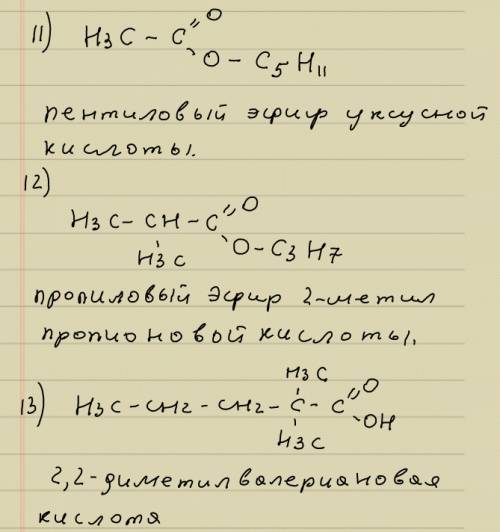 11) H3C - C =O
O - C5H11
пентиловый эфир уксусной
кислоты.
12)
H3C - CH - C =O
H3C O - C3H7
пропиловый эфир 2-метил
пропионовой кислоты.
H3C
13) H3C - CH2 - CH2 - C - C =O
H3C OH
2,2-диметилвалериановая
кислота